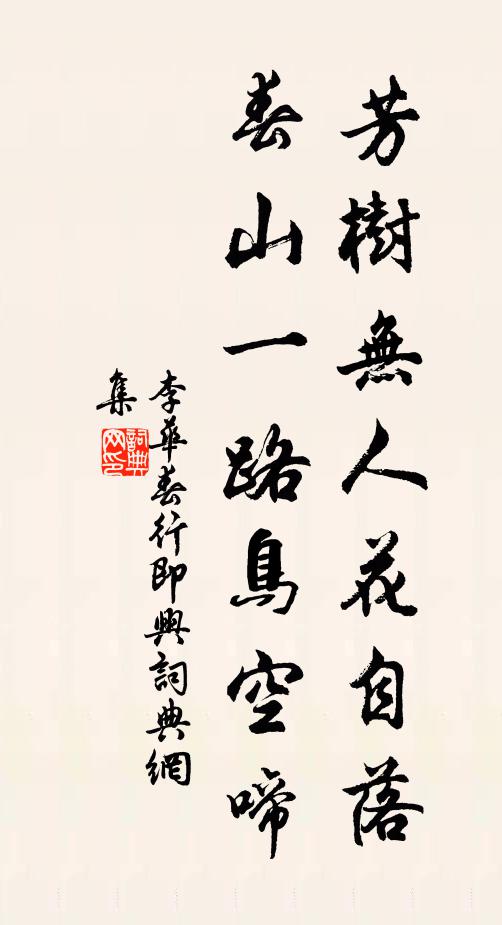 芳樹無人花自落
春山一路鳥空啼
李華春行即興詞典網
集
詞典网印